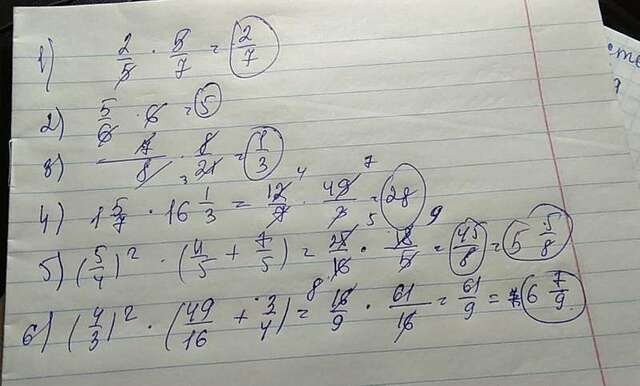 1) 2/5 · 5/7 = 2/7
2) 5/6 · 6 = 5
3) 7/8 · 8/21 3 = 1/3
4) 1 5/7 · 16 1/3 = 12/7 4 · 49/3 7 = 28
5) (5/4)² · (4/5 + 7/5) = 25/16 5 8 · 18/5 9 = 45/8 = 5 5/8
6) (4/3)² · (49/16 + 3/4) = 16/9 · 61/16 = 61/9 = 6 7/9